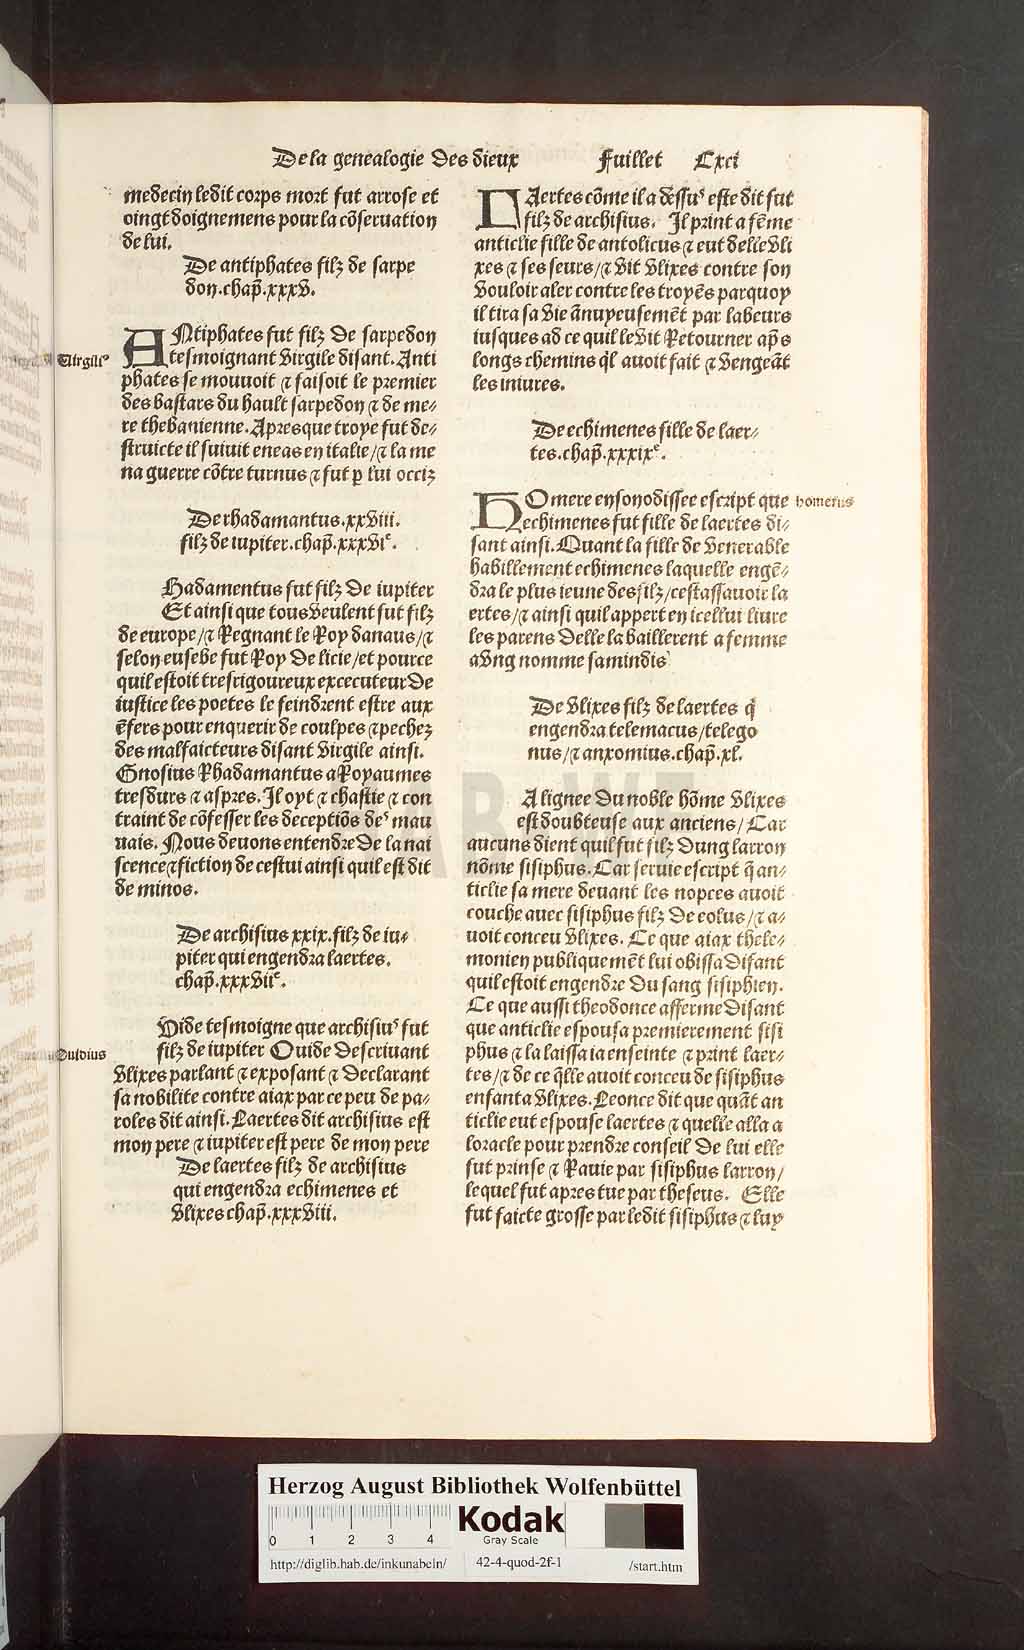 De la genealogie des dieux Fuillet Cxci
medecin ledit corps mort fut arrose et
oingt doignemens pour la cõseruation
de lui.
De antiphates filz de sarpe
don.chap̃.xxxv.
ANtiphates fut filz de sarpedon
tesmoignant virgile disant. Anti
phates se mouuoit ⁊ faisoit le premier
des bastars du hault sarpedon ⁊ de me⸗
re thebanienne. Apres que troye fut de⸗
structe il suiuit eneas en italie/⁊ la me
na guerre cõtre turnus ⁊ fut ꝑ lui occiz
Virgiliꝰ
De rhadamantus.xxviii.
filz de iupiter.chap̃.xxxviᵉ.
Hadamentus fut filz de iupiter
Et ainsi que tous veulent fut filz
de europe/⁊ Regnant le Roy danaus/⁊
selon eusebe fut Roy de licie/et pource
quil estoit tresrigoureux excecuteur de
iustice les poetes le feindrent estre aux
ẽfers pour enquerir de coulpes ⁊ pechez
des malfaicteurs disant virgile ainsi.
Gnosius Rhadamantus a Royaumes
tresdurs ⁊ aspres. Il oyt ⁊ chastie ⁊ con
traint de cõfesser les deceptiõs deˢ mau
uais. Nous deuons entendre de la nai
scence ⁊ fiction de cestui ainsi quil est dit
de minos.
De archisius xxix.filz de iu⸗
piter qui engendra laertes.
chap̃.xxxviiᵉ.
Uide tesmoigne que archisiuˢ fut
filz de iupiter Ouide descriuant
vlixes parlant ⁊ exposant ⁊ declarant
sa nobilite contre aiax par ce peu de pa⸗
roles dit ainsi. Laertes dit archisius est
mon pere ⁊ iupiter est pere de mon pere
Ouidius
De laertes filz de archisius
qui engendra echimenes et
vlixes chap̃.xxxviii.
LAertes cõme il a dessuˢ este dit fut
filz de archisius. Il print a fẽme
anticlie fille de antolicus ⁊ eut delle vli
xes ⁊ ses seurs/⁊ vit vlixes contre son
vouloir aler contre les troyẽs par quoy
il tira sa vie ãnuyeusemẽt par labeurs
iusques ad ce quil le vit Retourner ap̃s
longs chemins q̃l auoit fait ⁊ vengeãt
les iniures.
De echimenes fille de laer⸗
tes.chap̃.xxxixᵉ.
HOmere en son odissee escript que
echimenes fut fille de laertes di⸗
sant ainsi. Quant la fille de venerable
habillement echimenes laquelle engẽ⸗
dra le plus ieune des filz/cestassauoir la
ertes/⁊ ainsi quil appert en icellui liure
les parens delle la baillerent a femme
a vng nomme samindis
homerus
De vlixes filz de laertes q̃
engendra telemacus/telego
nus/⁊ anxomius.chap̃.xl.
A lignee du noble hõme vlixes
est doubteuse aux anciens/Car
aucuns dient quil fut filz dung larron
nõme sisiphus. Car seruie escript q̃ an⸗
ticlie sa mere deuant les nopces auoit
couche auec sisiphus filz de eolus/⁊ a⸗
uoit conceu vlixes. Ce que aiax thele⸗
monien publiquemẽt lui obissa disant
quil estoit engendre du sang sisiphien.
Ce que aussi theodonce afferme disant
que anticlie espousa premierement sisi
phus ⁊ la laissa ia enseinte ⁊ print laer⸗
tes/⁊ de ce q̃lle auoit conceu de sisiphus
enfanta vlixes. Leonce dit que quãt an
ticlie eut espouse laertes ⁊ quelle alla a
loracle pour prendre conseil de lui elle
fut prinse ⁊ Rauie par sisiphus larron/
lequel fut apres tue par theseus. Elle
fut faicte grosse par ledit sisiphus ⁊ luy
Herzog August Bibliothek Wolfenbüttel
0 1 2 3 4
Kodak
Gray Scale
http://diglib.hab.de/inkunabeln/ 42-4-quod-2f-1 /start.htm